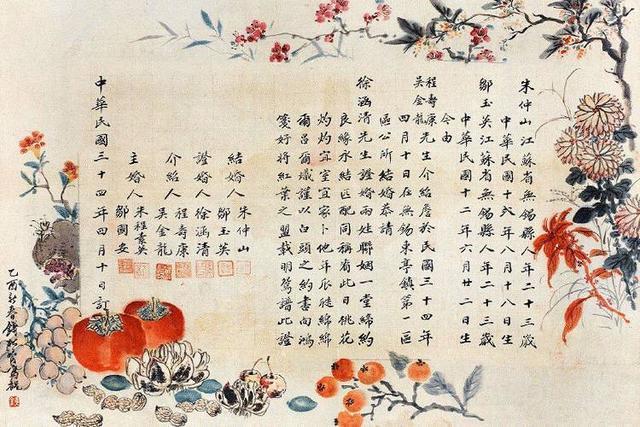 朱仲山江蘇省無錫縣人年二十三歲
中華民國十年八月十八日生
鄒玉英江蘇省無錫縣人年二十三歲
中華民國十二年六月廿二日生
今由
程壽康
吳金龍
先生介紹詹於民國三十四年
四月十日在無錫東亭鎮第一區
區公所結婚恭請
徐涵清先生證婚兩姓聯姻一堂締約
良緣永結匹配同稱看此日桃花
灼灼宜室宜家卜他年瓜瓞綿綿
爾昌爾熾謹以白頭之約書向鴻
箋好將紅葉之盟載明鴛譜此證
結婚人
朱仲山
鄒玉英
證婚人徐涵清
介紹人
程壽康
吳金龍
主婚人
朱程素英
鄒國安
中華民國三十四年四月十日訂
乙酉新春